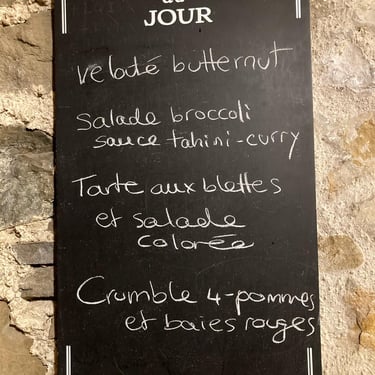 du
JOUR
Velouté butternut
Salade broccoli
sauce tahini-curry
Tarte aux blettes
et salade
colorée
Crumble 4-pommes
et baies rouges